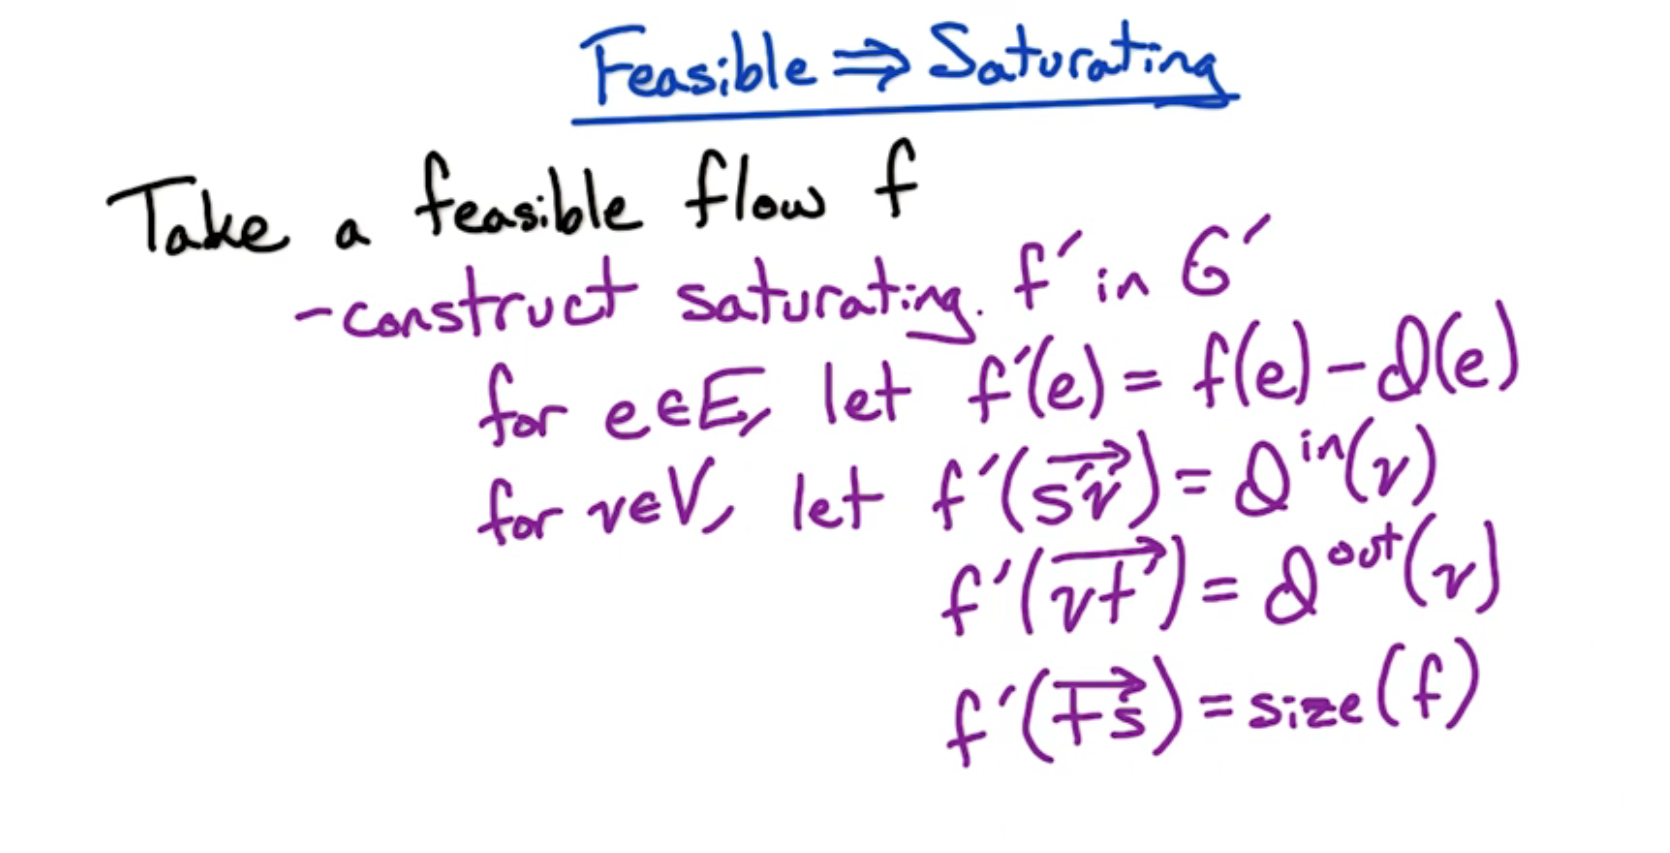 Feasible ⇒ Saturating
Take a feasible flow f
- construct saturating. f′ in G′
for e∈E, let f′(e) = f(e) - d(e)
for v∈V, let f′(s⃗v⃗) = dⁱⁿ(v)
f′(v⃗t⃗) = dᵒᵘᵗ(v)
f′(t⃗s⃗) = size(f)